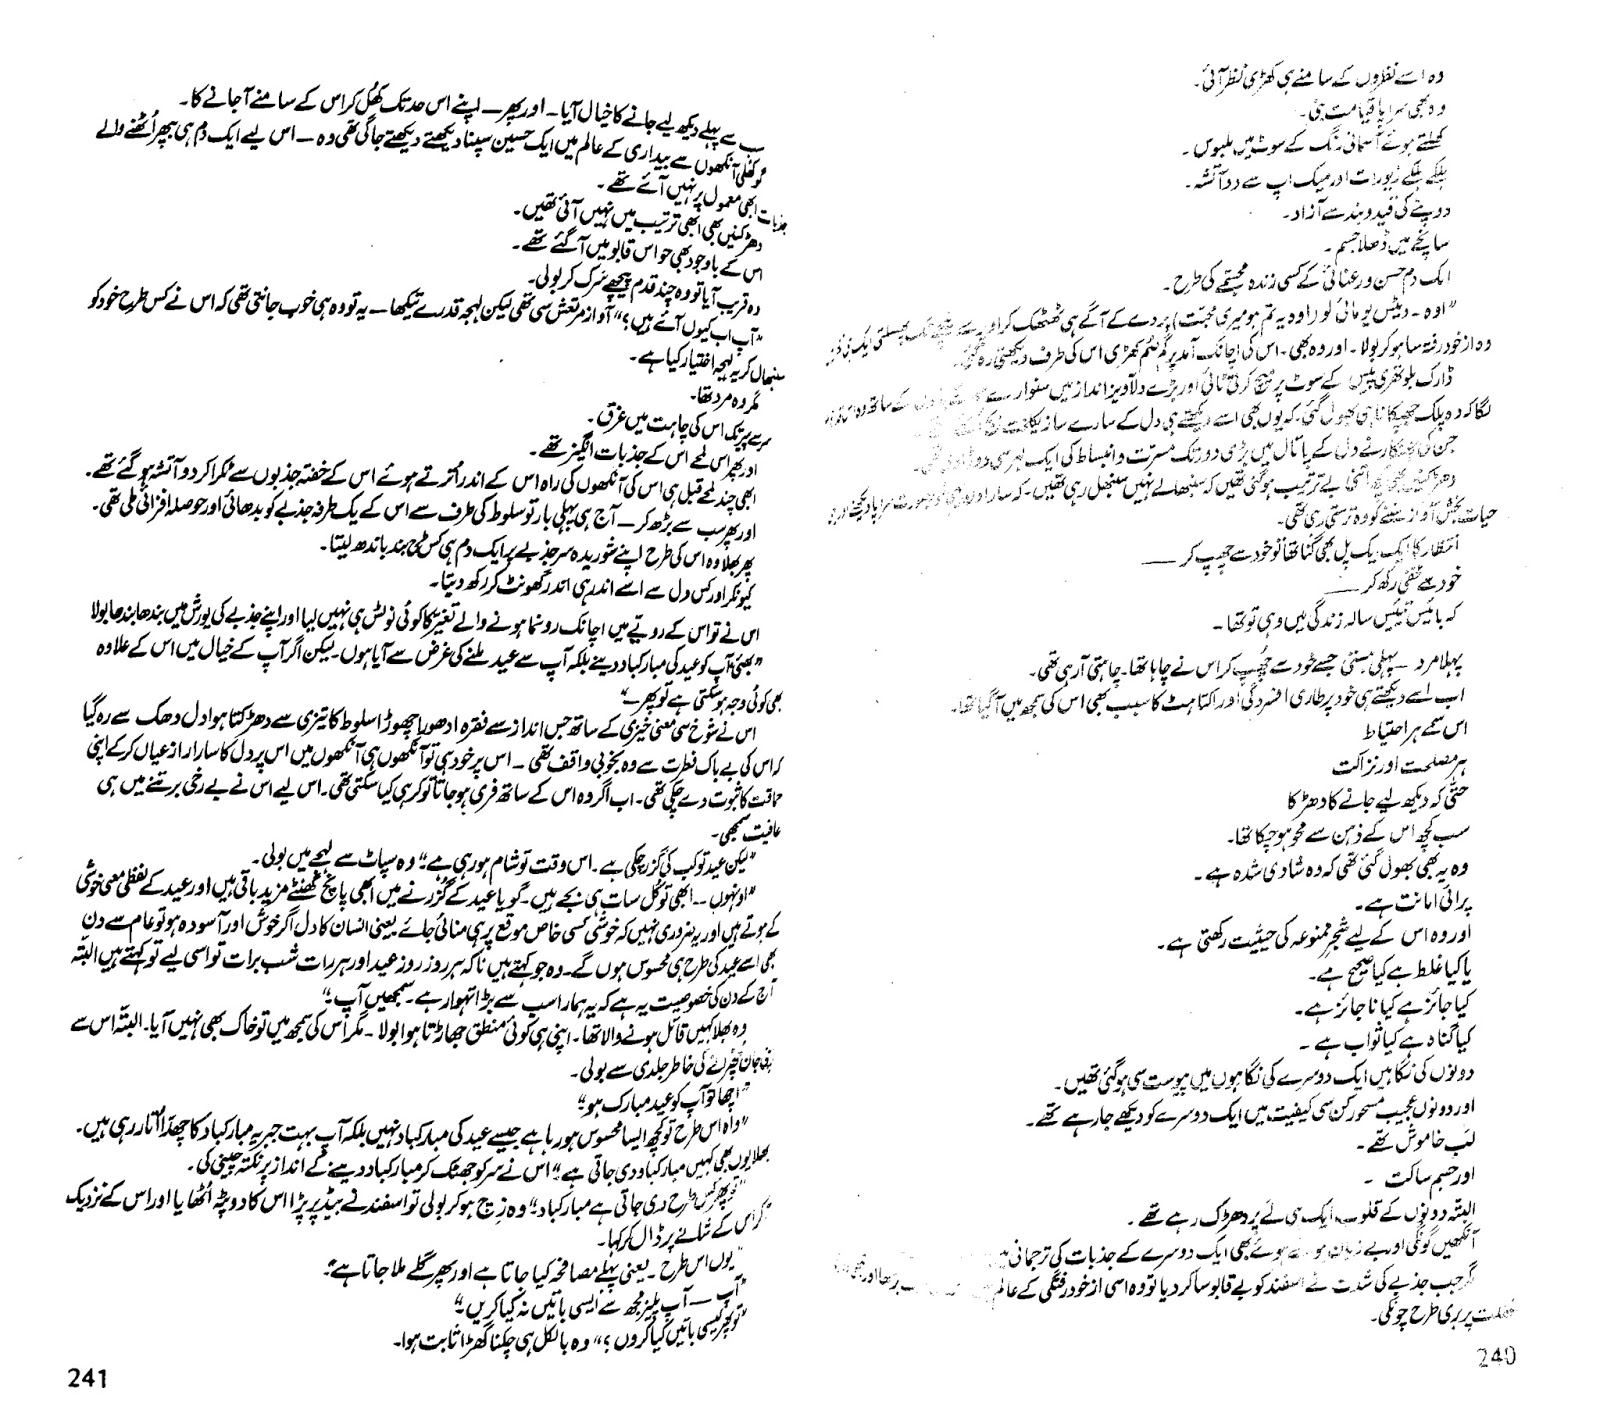 وہ اسے نظروں کے سامنے ہی کھڑی نظر آئی۔
وہ بھی سراپا قیامت بنی۔
کھلتے ہوئے آسمانی رنگ کے سوٹ میں ملبوس۔
ہلکے ہلکے زیورات اور میک اپ سے دو آتشہ۔
دوپٹے کی قید و بند سے آزاد۔
سانچے میں ڈھلا جسم۔
ایک دم حسن و رعنائی کے کسی زندہ مجسمے کی طرح۔
"اوہ۔ دیٹس یو مائی لو (اوہ یہ تم ہو میری محبت) پردے کے آگے ہی ٹھٹھک کر اوپر سے نیچے تک پھسلتی ایک ہی نظر
وہ از خود رفتہ سا ہو کر بولا۔ اور وہ بھی۔ اس کی اچانک آمد پر گم صم کھڑی اس کی طرف دیکھتی رہ گئی۔
ڈارک بلو تھری پیس کے سوٹ پر میچ کرتی ٹائی اور بڑے دلآویز انداز میں سنوارے کے ساتھ وہ
لگا کہ وہ پلک جھپکانا ہی بھول گئی۔ کہ یوں بھی اسے دیکھتے ہی دل کے سارے ساز یکلخت بج
جن کی جھنکار نے دل کے پاتال میں بڑی دور تک مسرت و انبساط کی ایک لہر سی دوڑا دی تھی۔
دھڑکنیں بھی کچھ اتنی بے ترتیب ہو گئی تھیں کہ سنبھالے نہیں سنبھل رہی تھیں۔ کہ
حیات بخش آواز سننے کو وہ ترستی رہی تھی۔
انتظار کا ایک ایک پل بھی گنا تھا تو خود سے چھپ کر ——
خود سے مخفی رکھ کر ——
کہ بائیس تیئیس سالہ زندگی میں وہی تو تھا۔
پہلا مرد – پہلی ہستی جسے خود سے چھپ کر اس نے چاہا تھا۔ چاہتی آرہی تھی۔
اب اسے دیکھتے ہی خود پر طاری افسردگی اور اکتاہٹ کا سبب بھی اس کی سمجھ میں آ گیا تھا۔
اس سمے ہر احتیاط
ہر مصلحت اور نزاکت
حتیٰ کہ دیکھ لیے جانے کا دھڑکا
سب کچھ اس کے ذہن سے محو ہو چکا تھا۔
وہ یہ بھی بھول گئی تھی کہ وہ شادی شدہ ہے۔
پرائی امانت ہے۔
اور وہ اس کے لیے شجرِ ممنوعہ کی حیثیت رکھتی ہے۔
یا کیا غلط ہے کیا صحیح ہے۔
کیا جائز ہے کیا ناجائز ہے۔
کیا گناہ ہے کیا ثواب ہے۔
دونوں کی نگاہیں ایک دوسرے کی نگاہوں میں پیوست سی ہو گئی تھیں۔
اور دونوں عجیب مسحور کن سی کیفیت میں ایک دوسرے کو دیکھے جا رہے تھے۔
لب خاموش تھے۔
اور جسم ساکت۔
البتہ دونوں کے قلوب ایک ہی لے پر دھڑک رہے تھے۔
آنکھیں گونگی اور بے زبان ہوتے ہوئے بھی ایک دوسرے کے جذبات کی ترجمانی
گر جب جذبے کی شدت نے اسفند کو بے قابو سا کر دیا تو وہ اسی از خود رفتگی کے عالم
غفلت پر بری طرح چونکی۔
240
سب سے پہلے دیکھ لیے جانے کا خیال آیا۔ اور پھر – اپنے اس حد تک کھل کر اس کے سامنے آ جانے کا۔
گو کھلی آنکھوں سے بیداری کے عالم میں ایک حسین سپنا دیکھتے دیکھتے جاگی تھی وہ – اس لیے ایک دم ہی بپھر اُٹھنے والے
جذبات ابھی معمول پر نہیں آئے تھے۔
دھڑکنیں بھی ابھی ترتیب میں نہیں آئی تھیں۔
اس کے باوجود بھی حواس قابو میں آ گئے تھے۔
وہ قریب آیا تو وہ چند قدم پیچھے سَرک کر بولی۔
"آپ اب کیوں آئے ہیں؟" آواز مرتعش سی تھی لیکن لہجہ قدرے تیکھا – یہ تو وہ ہی خوب جانتی تھی کہ اس نے کس طرح خود کو
سنبھال کر یہ لہجہ اختیار کیا ہے۔
مگر وہ مرد تھا۔
سر سے پیر تک اس کی چاہت میں غرق۔
اور پھر اس لمحے اس کے جذبات انگیز تھے۔
ابھی چند لمحے قبل ہی اس کی آنکھوں کی راہ اس کے اندر اُترتے ہوئے اس کے خفتہ جذبوں سے ٹکرا کر دو آتشہ ہو گئے تھے۔
اور پھر سب سے بڑھ کر – آج ہی پہلی بار تو سلوط کی طرف سے اس کے یک طرفہ جذبے کو بدھائی اور حوصلہ افزائی ملی تھی۔
پھر بھلا وہ اس کی طرح اپنے شوریدہ سر جذبے پر ایک دم ہی کس طرح بند باندھ لیتا۔
کیونکر اور کس دل سے اسے اندر ہی اندر گھونٹ کر رکھ دیتا۔
اس نے تو اس کے رویے میں اچانک رونما ہونے والے تغیر کا کوئی نوٹس ہی نہیں لیا اور اپنے جذبے کی یورش میں بندھا بندھا بولا
"بھئی آپ کو عید کی مبارکباد دینے بلکہ آپ سے عید ملنے کی غرض سے آیا ہوں۔ لیکن اگر آپ کے خیال میں اس کے علاوہ
بھی کوئی وجہ ہو سکتی ہے تو پھر –"
اس نے شوخ سی معنی خیزی کے ساتھ جس انداز سے فقرہ ادھورا چھوڑا سلوط کا تیزی سے دھڑکتا ہوا دل دھک سے رہ گیا
کہ اس کی بے باک فطرت سے وہ بخوبی واقف تھی – اس پر خود ہی تو آنکھوں ہی آنکھوں میں اس پر دل کا سارا راز عیاں کر کے اپنی
حماقت کا ثبوت دے چکی تھی۔ اب اگر وہ اس کے ساتھ فری ہو جاتا تو کر ہی کیا سکتی تھی۔ اس لیے اس نے بے رخی برتنے میں ہی
عافیت سمجھی۔
"لیکن عید تو کب کی گزر چکی ہے۔ اس وقت تو شام ہو رہی ہے" وہ سپاٹ سے لہجے میں بولی۔
"اونہوں – ابھی تو کُل سات ہی بجے ہیں۔ گویا عید کے گزرنے میں ابھی پانچ گھنٹے مزید باقی ہیں اور عید کے لفظی معنی خوشی
کے ہوتے ہیں اور یہ ضروری نہیں کہ خوشی کسی خاص موقع پر ہی منائی جائے یعنی انسان کا دل اگر خوش اور آسودہ ہو تو عام سے دن
بھی اسے عید کی طرح ہی محسوس ہوں گے۔ وہ جو کہتے ہیں نا کہ ہر روز روزِ عید اور ہر رات شب برات تو اسی لیے تو کہتے ہیں البتہ
آج کے دن کی خصوصیت یہ ہے کہ یہ ہمارا سب سے بڑا تہوار ہے۔ سمجھیں آپ"
وہ بھلا کہیں قائل ہونے والا تھا۔ اپنی ہی کوئی منطق جھاڑتا ہوا بولا۔ مگر اس کی سمجھ میں تو خاک بھی نہیں آیا۔ البتہ اس سے
اپنی جان چھڑانے کی خاطر جلدی سے بولی۔
"اچھا تو آپ کو عید مبارک ہو"
"واہ اس طرح تو کچھ ایسا محسوس ہو رہا ہے جیسے عید کی مبارکباد نہیں بلکہ آپ بہت جبریہ مبارکباد کا چھدا اُتار رہی ہیں۔
بھلا یوں بھی کہیں مبارکباد دی جاتی ہے" اس نے سر کو جھٹک کر مبارکباد دینے کے انداز پر نکتہ چینی کی۔
"تو پھر کس طرح دی جاتی ہے مبارکباد" وہ زچ ہو کر بولی تو اسفند نے بیڈ پر پڑا اس کا دوپٹہ اُٹھایا اور اس کے نزدیک
آکر اس کے شانے پر ڈال کر کہا۔
"یوں اس طرح۔ یعنی پہلے مصافحہ کیا جاتا ہے اور پھر گلے ملا جاتا ہے"
"آپ – آپ پلیز مجھ سے ایسی باتیں نہ کیا کریں"
"تو پھر کیسی باتیں کیا کروں؟" وہ بالکل ہی چکنا گھڑا ثابت ہوا۔
241